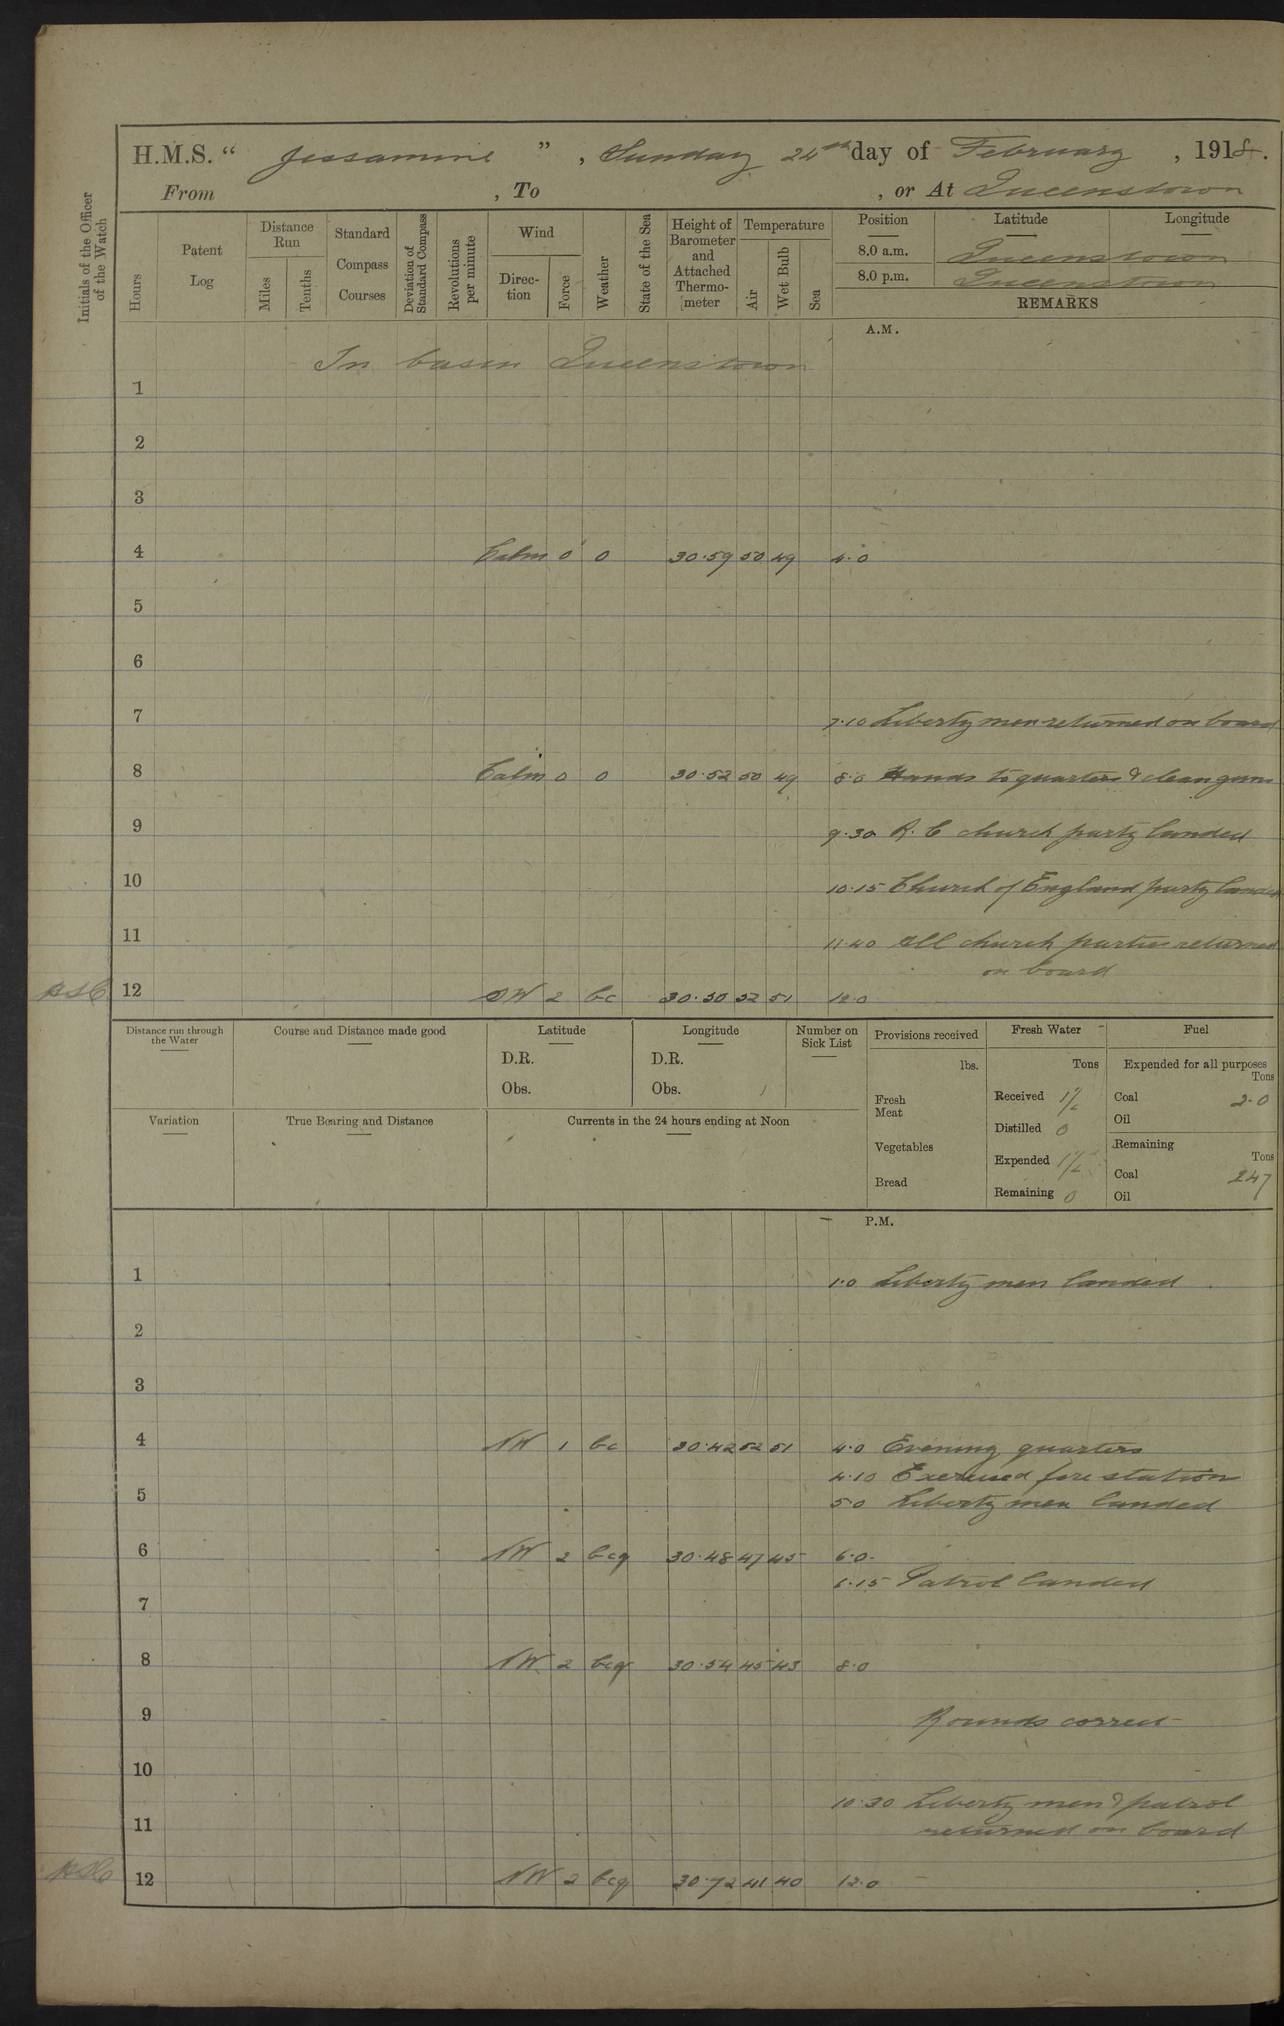 H.M.S. “ Jessamine ”, Sunday 24th day of February, 1918.
From , To , or At Queenstown
Initials of the Officer of the Watch
Hours
Patent Log
Distance Run
Miles
Tenths
Standard Compass Courses
Deviation of Standard Compass
Revolutions per minute
Wind
Direc-tion
Force
Weather
State of the Sea
Height of Barometer and Attached Thermo-meter
Temperature
Air
Wet Bulb
Sea
Position Latitude Longitude
8.0 a.m. Queenstown
8.0 p.m. Queenstown
REMARKS
A.M.
In basin Queenstown
1
2
3
4 Calm 0 0 30.59 50 49 4.0
5
6
7 7.10 Liberty men returned on board
8 Calm 0 0 30.52 50 49 8.0 Hands to quarters & clean guns
9 9.30 R.C church party landed
10 10.15 Church of England party landed
11 11.40 All church parties returned
on board
12 SW 2 bc 30.50 52 51 12.0
Distance run through the Water
Course and Distance made good
Latitude
D.R.
Obs.
Longitude
D.R.
Obs.
Number on Sick List
Provisions received
lbs.
Fresh Meat
Vegetables
Bread
Fresh Water
Tons
Received
Distilled 0
Expended
Remaining 0
Fuel
Expended for all purposes
Tons
Coal 2.0
Oil
Remaining
Tons
Coal 247
Oil
Variation
True Bearing and Distance
Currents in the 24 hours ending at Noon
P.M.
1 1.0 Liberty men landed
2
3
4 NW 1 bc 30.42 52 51 4.0 Evening quarters
4.10 Exercised fire station
5 5.0 Liberty men landed
6 NW 2 bcq 30.48 47 45 6.0
6.15 Patrol landed
7
8 NW 2 bcq 30.54 45 43 8.0
9 Rounds correct
10
10.30 Liberty men & patrol
11 returned on board
12 NW 2 bcq 30.72 41 40 12.0